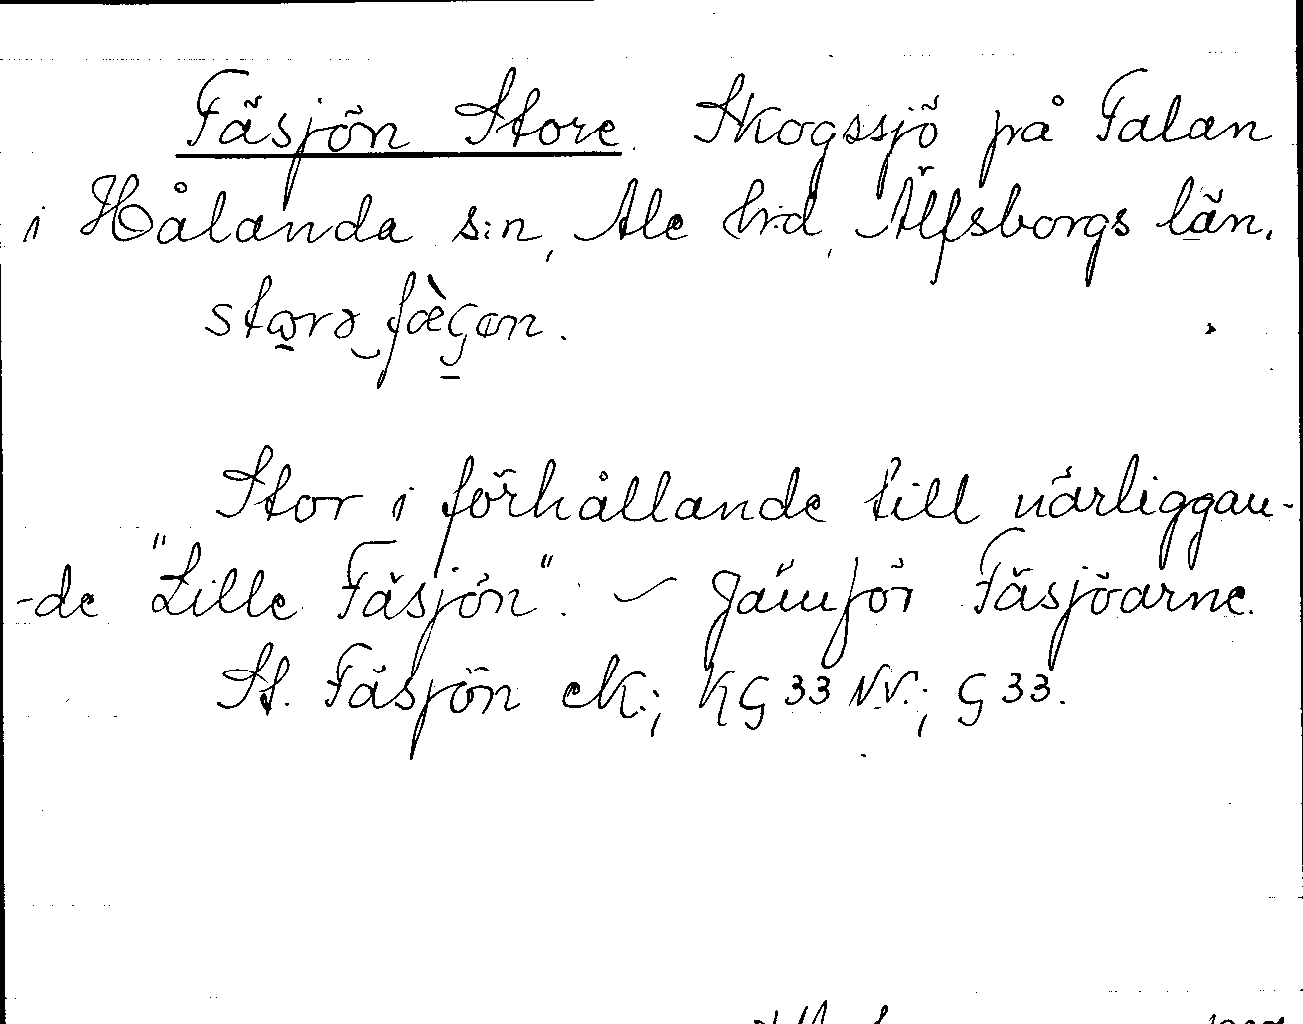 Fäsjön Store. Skogssjö på Falan
i Hålanda s:n, Ale h:d, Älfsborgs län.
Stor i förhållande till närliggan-
-de "Lille Fäsjön". – Jämför Fäsjöarne.
St. Fäsjön ek.; KG 33 NV.; G 33.